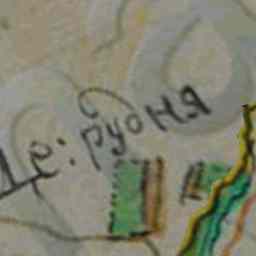 Де: рудня